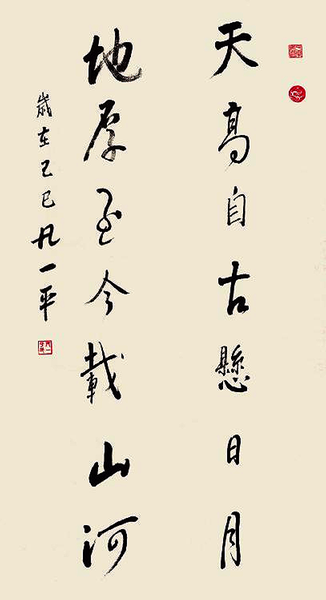 天高自古懸日月
地厚至今載山河
歲在己巳凡一平